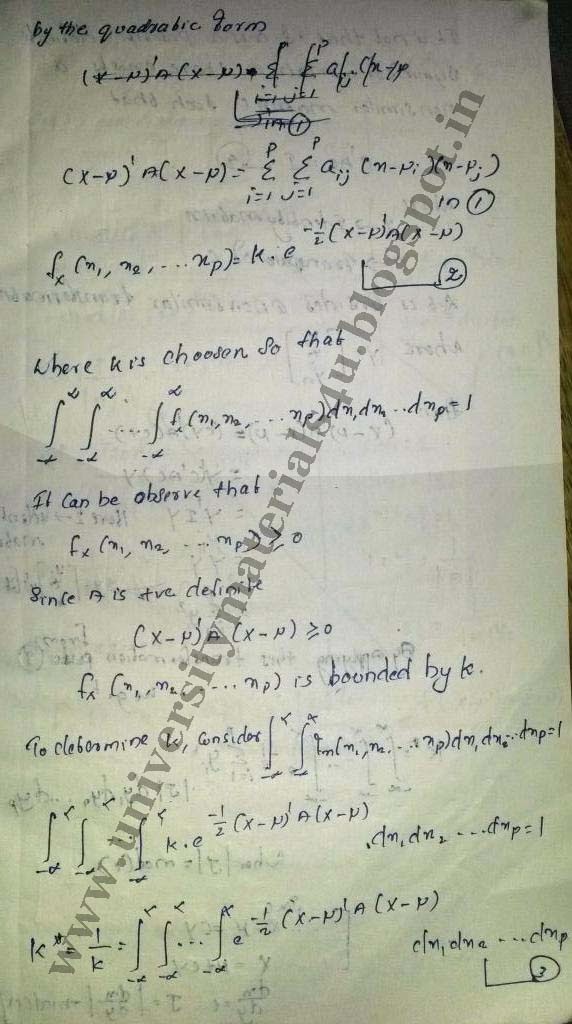 by the quadrabic form
(x-μ)'A(x-μ) = Σ Σ aij (x-μ
i=1 j=1
in ①
(x-μ)' A(x-μ) = Σ(i=1 to p) Σ(j=1 to p) aij (x-μi)(x-μj)
in ①
fx (x1, x2, ... xp) = k. e^{-1/2 (x-μ)'A(x-μ)}
②
where k is choosen so that
∫-∞^∞ ∫-∞^∞ ∫-∞^∞ fx (x1, x2, ... xp) dx1 dx2 ... dxp = 1
It can be observe that
fx (x1, x2, ... xp) ≥ 0
Since A is +ve definite
(x-μ)' A (x-μ) ≥ 0
fx (x1, x2, .... xp) is bounded by k.
To determine k, consider ∫-∞^∞ ∫-∞^∞ fx (x1, x2, ... xp) dx1 dx2 ... dxp = 1
∫-∞^∞ ∫-∞^∞ ∫-∞^∞ k. e^{-1/2 (x-μ)' A(x-μ)} . dx1 dx2 ... dxp = 1
k* = 1/k = ∫-∞^∞ ∫-∞^∞ ... ∫-∞^∞ e^{-1/2 (x-μ)' A (x-μ)} dx1 dx2 ... dxp
③
www.universitymaterials4u.blogspot.in